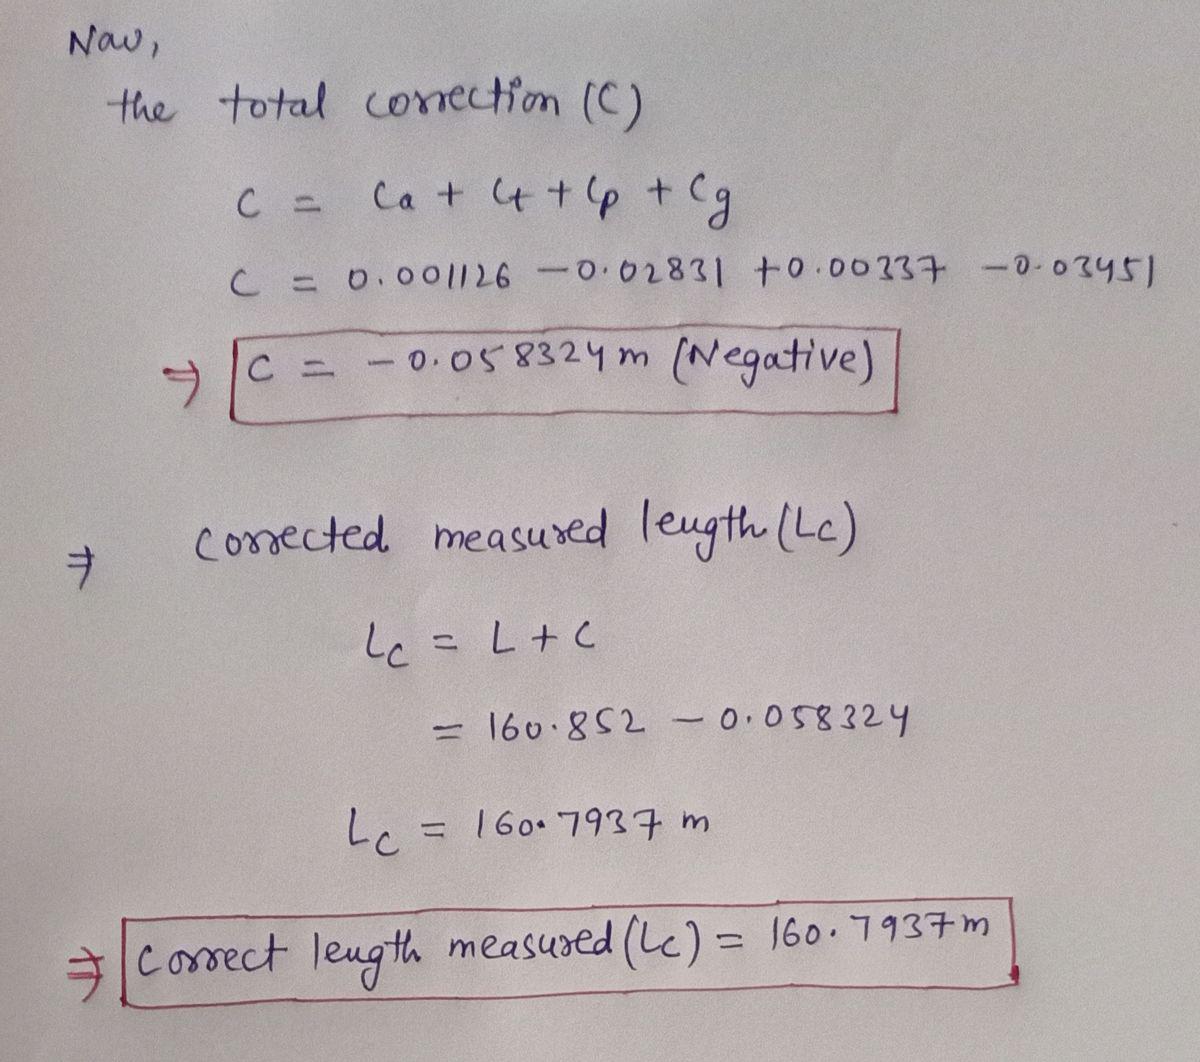 Now,
the total correction (C)
C = Ca + Ct + Cp + Cg
C = 0.001126 - 0.02831 + 0.00337 - 0.03451
⇒ C = - 0.058324 m (Negative)
⇒ corrected measured length (Lc)
Lc = L + C
= 160.852 - 0.058324
Lc = 160.7937 m
⇒ correct length measured (Lc) = 160.7937 m